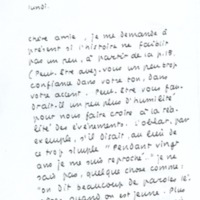 lundi.
chère amie, je me demande à
présent si l'histoire ne faiblit
pas un peu, à partir de la p.13.
(Peut-être avez-vous un peu trop
confiance dans votre ton, dans
votre accent. Peut-être vous fau
drait-il un peu plus d'humilité
pour nous faire croire à la réa
lité des événements. L'oblat, par
exemple, s'il disait, au lieu de
ce trop simple "Pendant vingt
ans je me suis reproché.." je ne
sais pas, quelque chose comme:
"on dit beaucoup de paroles lé-
quand on est jeune. Plus